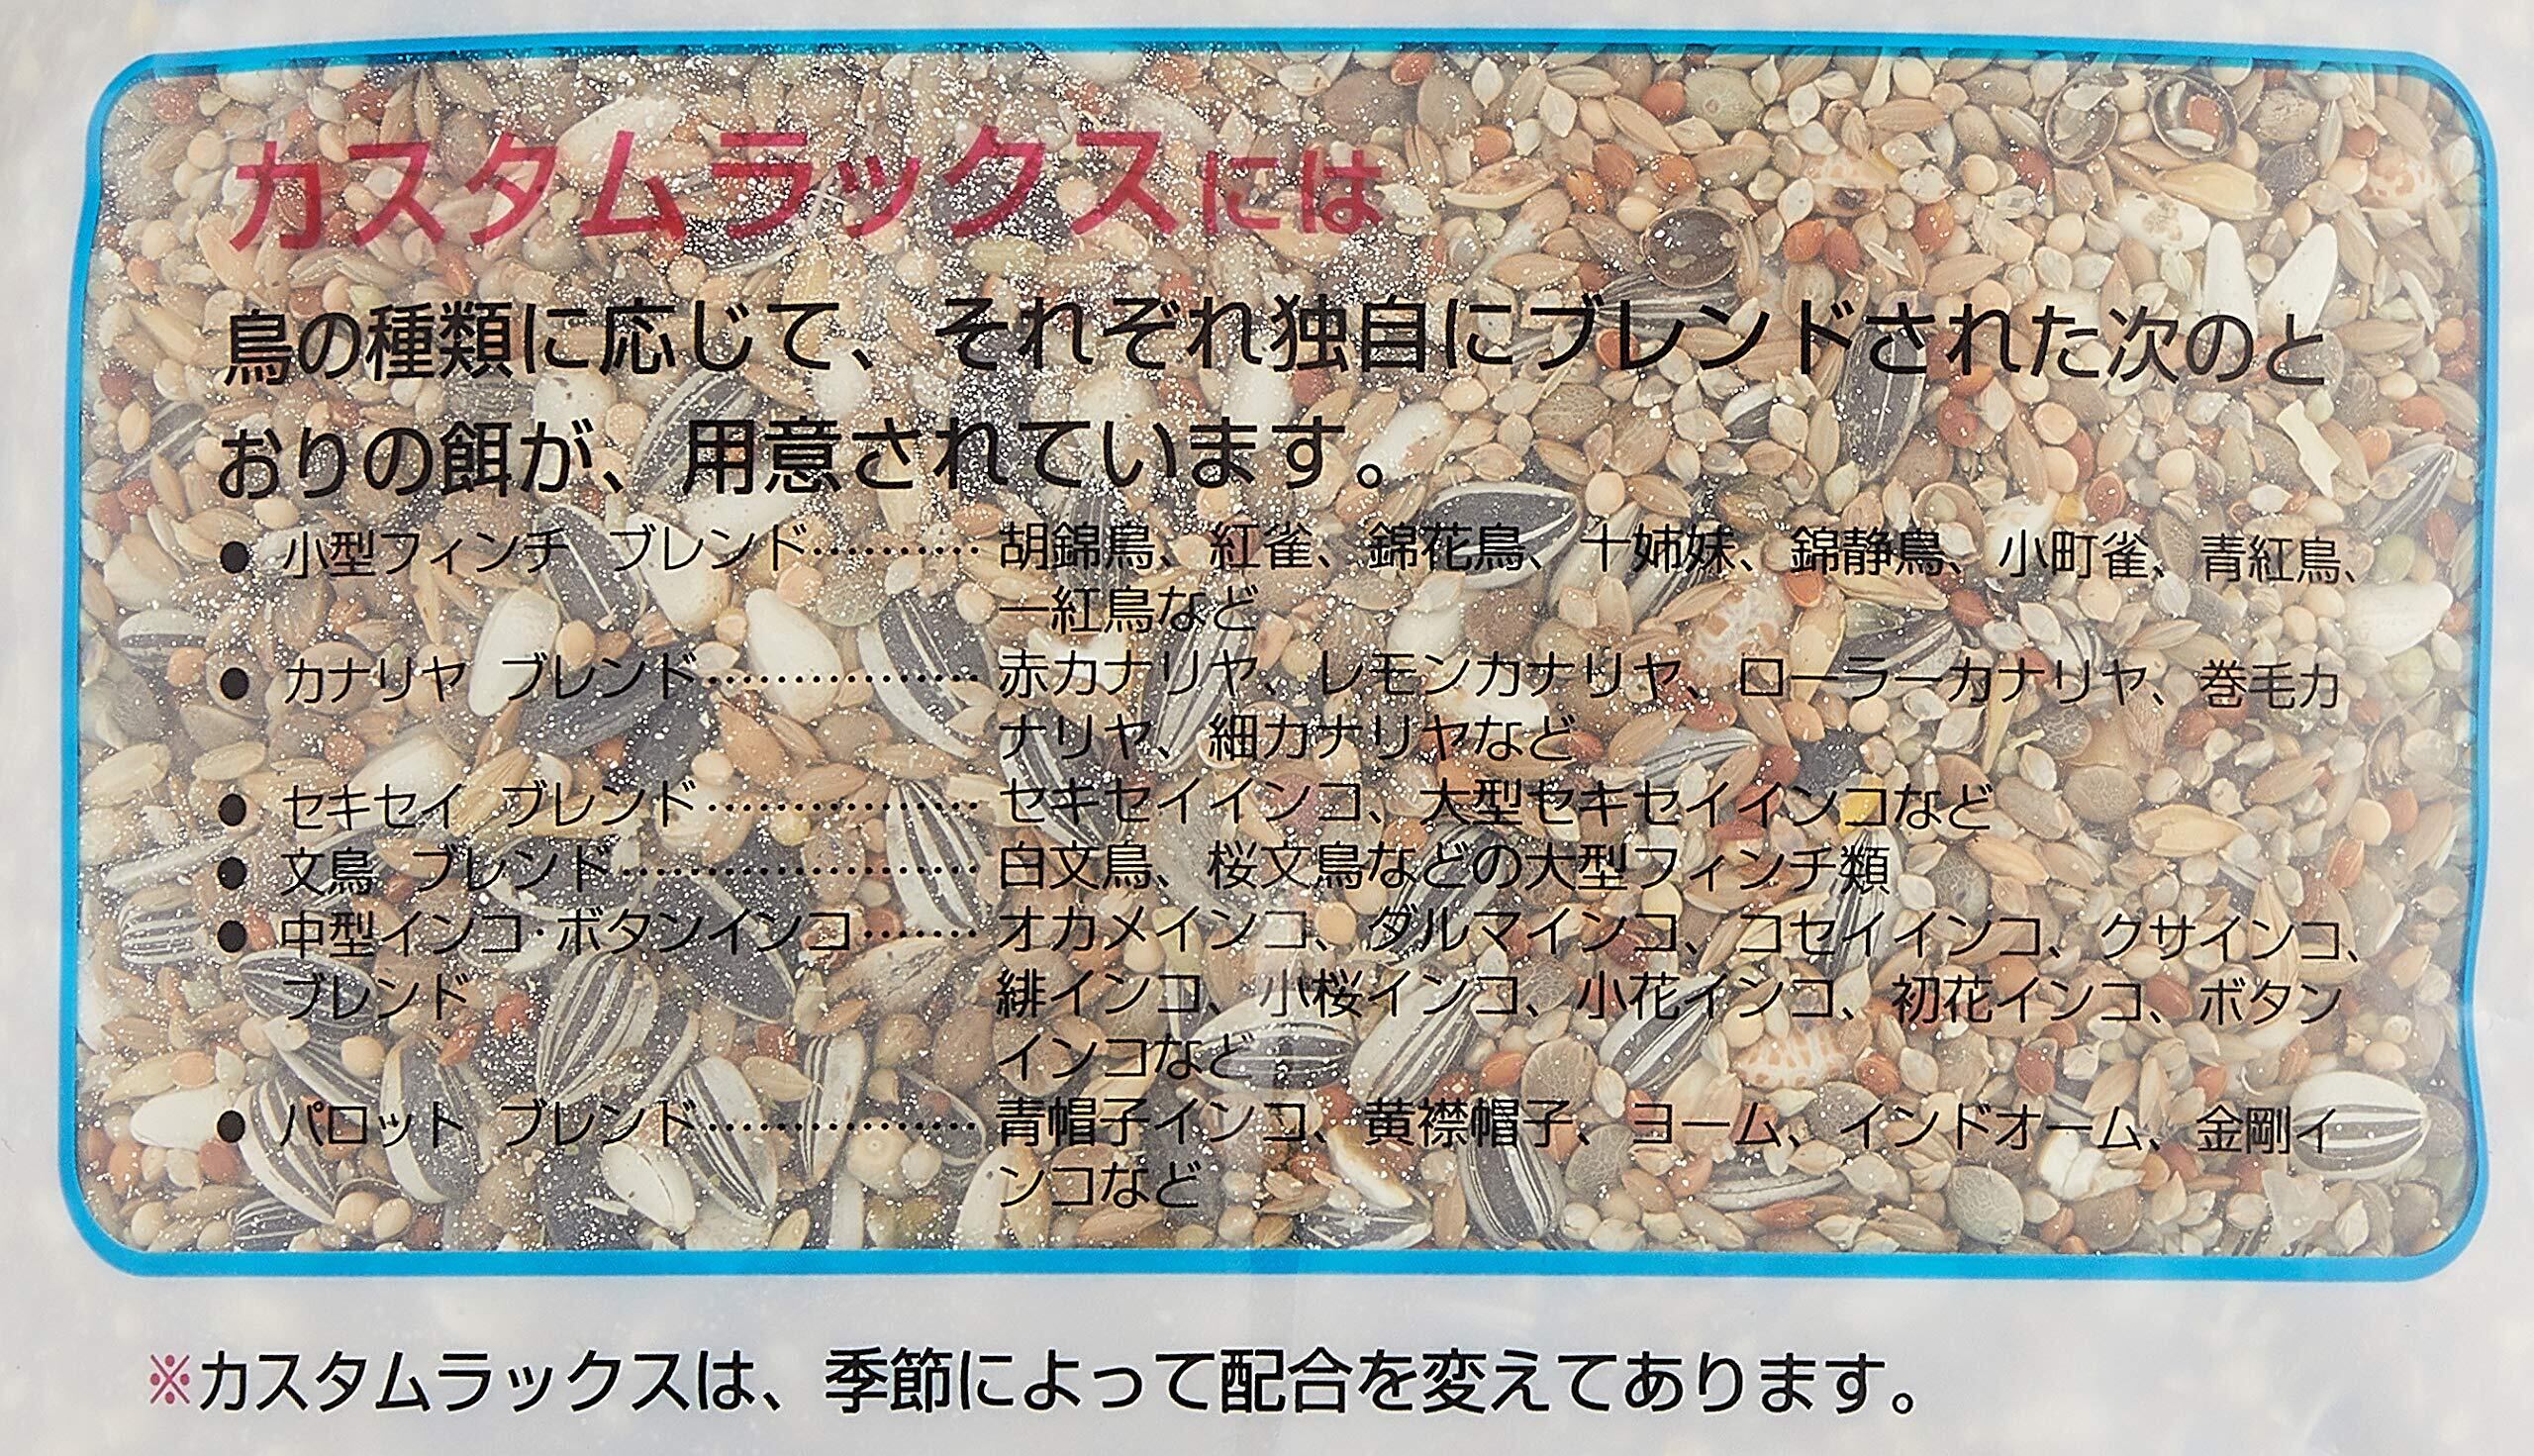 カスタムラックスには
鳥の種類に応じて、それぞれ独自にブレンドされた次のと
おりの餌が、用意されています。
● 小型フィンチ ブレンド………… 胡錦鳥、紅雀、錦花鳥、十姉妹、錦静鳥、小町雀、青紅鳥、
一紅鳥など
● カナリヤ ブレンド……………… 赤カナリヤ、レモンカナリヤ、ローラーカナリヤ、巻毛カ
ナリヤ、細カナリヤなど
● セキセイ ブレンド……………… セキセイインコ、大型セキセイインコなど
● 文鳥 ブレンド…………………… 白文鳥、桜文鳥などの大型フィンチ類
● 中型インコ・ボタンインコ……… オカメインコ、ダルマインコ、コセイインコ、クサインコ、
ブレンド 緋インコ、小桜インコ、小花インコ、初花インコ、ボタン
インコなど
● パロット ブレンド……………… 青帽子インコ、黄襟帽子、ヨーム、インドオーム、金剛イ
ンコなど
※カスタムラックスは、季節によって配合を変えてあります。